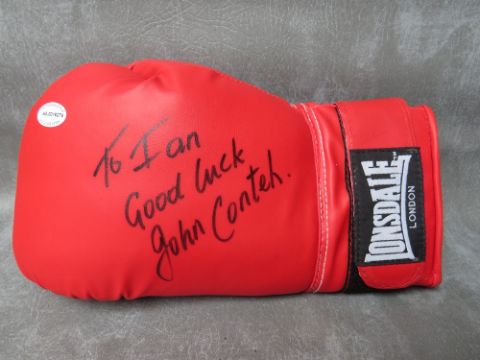 To Ian
Good luck
John Conteh.
LONSDALE
LONDON